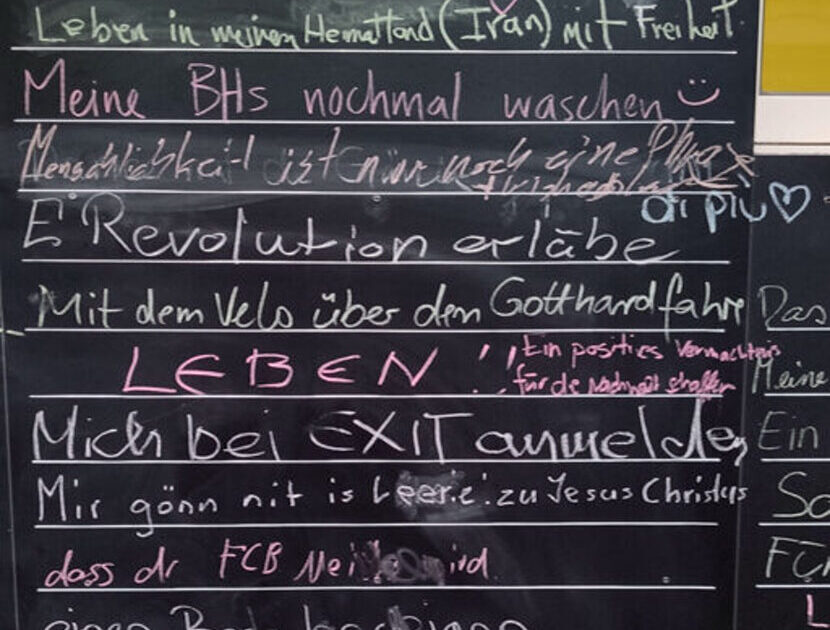 Leben in meinen Heimatland (Iran) mit Freiheit
Meine BHs nochmal waschen
Menschlichkeit ist nur noch eine
di più
E Revolution erläbe
Mit dem Velo über den Gotthard fahre
LEBEN !!
Ein positives Vermächtnis
für de Nachwält schaffen
Mich bei EXIT anmelden
Mir gönn nit is Leere! zu Jesus Christus
dass dr FCB Mei ird
einen
Das
Meine
Ein
So
FCK
L